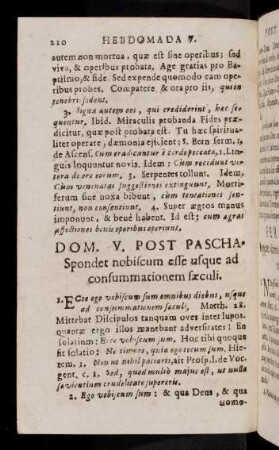 220 HEBDOMADA V.
autem non mortua, quæ est sine operibus; sed
viva, & operibus probata. Age gratias pro Ba-
ptismo, & fide. Sed expende quomodo eam ope-
ribus probes. Compatere, & ora pro iis, quien
3. Signa autem eos, qui crediderint, hæc se-
quentur, Ibid. Miraculis probanda Fides præ-
dicitur, quæ post probata est. Tu hæc spiritua-
liter operate, dæmonia ejicient: S. Bern. serm. 1.
de Ascens. Cum eradicantur à corde peccata, 2. Lin-
guis loquentur novis. Idem: Cum recedunt ve-
tera de ore eorum. 3. Serpentes tollunt. Idem,
Cùm venenatas suggestiones extinguunt. Morti-
ferum sine noxa bibunt, cùm tentationes sen-
tiunt, nou consentiunt. 4. Super ægros manus
imponunt, & benè habent. Id est; cum agras
affectiones bonis operibus operiunt.
DOM. V. POST PASCHA.
Spondet nobiscum esse usque ad
consummationem sæculi.
1. Ecce ego vobiscum sum omnibus diebus, usque
ad consummationem sæculi, Matth. 28.
Mittebat Discipulos tanquam oves inter lupos.
quantæ ergo illos manebant adversitates! En
solatium: Ecce vobiscum sum. Hoc tibi quoque
sit solatio; Ne timeas, quia ego tecum sum, Hie-
rem. 1. Non us nobil pacuaris, ait Prosp. l. de Voc.
gent. c. 1. Sed, quod multò majus est, ut nulla
sævientium crudelitate superoris.
2. Ego vobiscum sum: & qua Deus, & qua
homo-